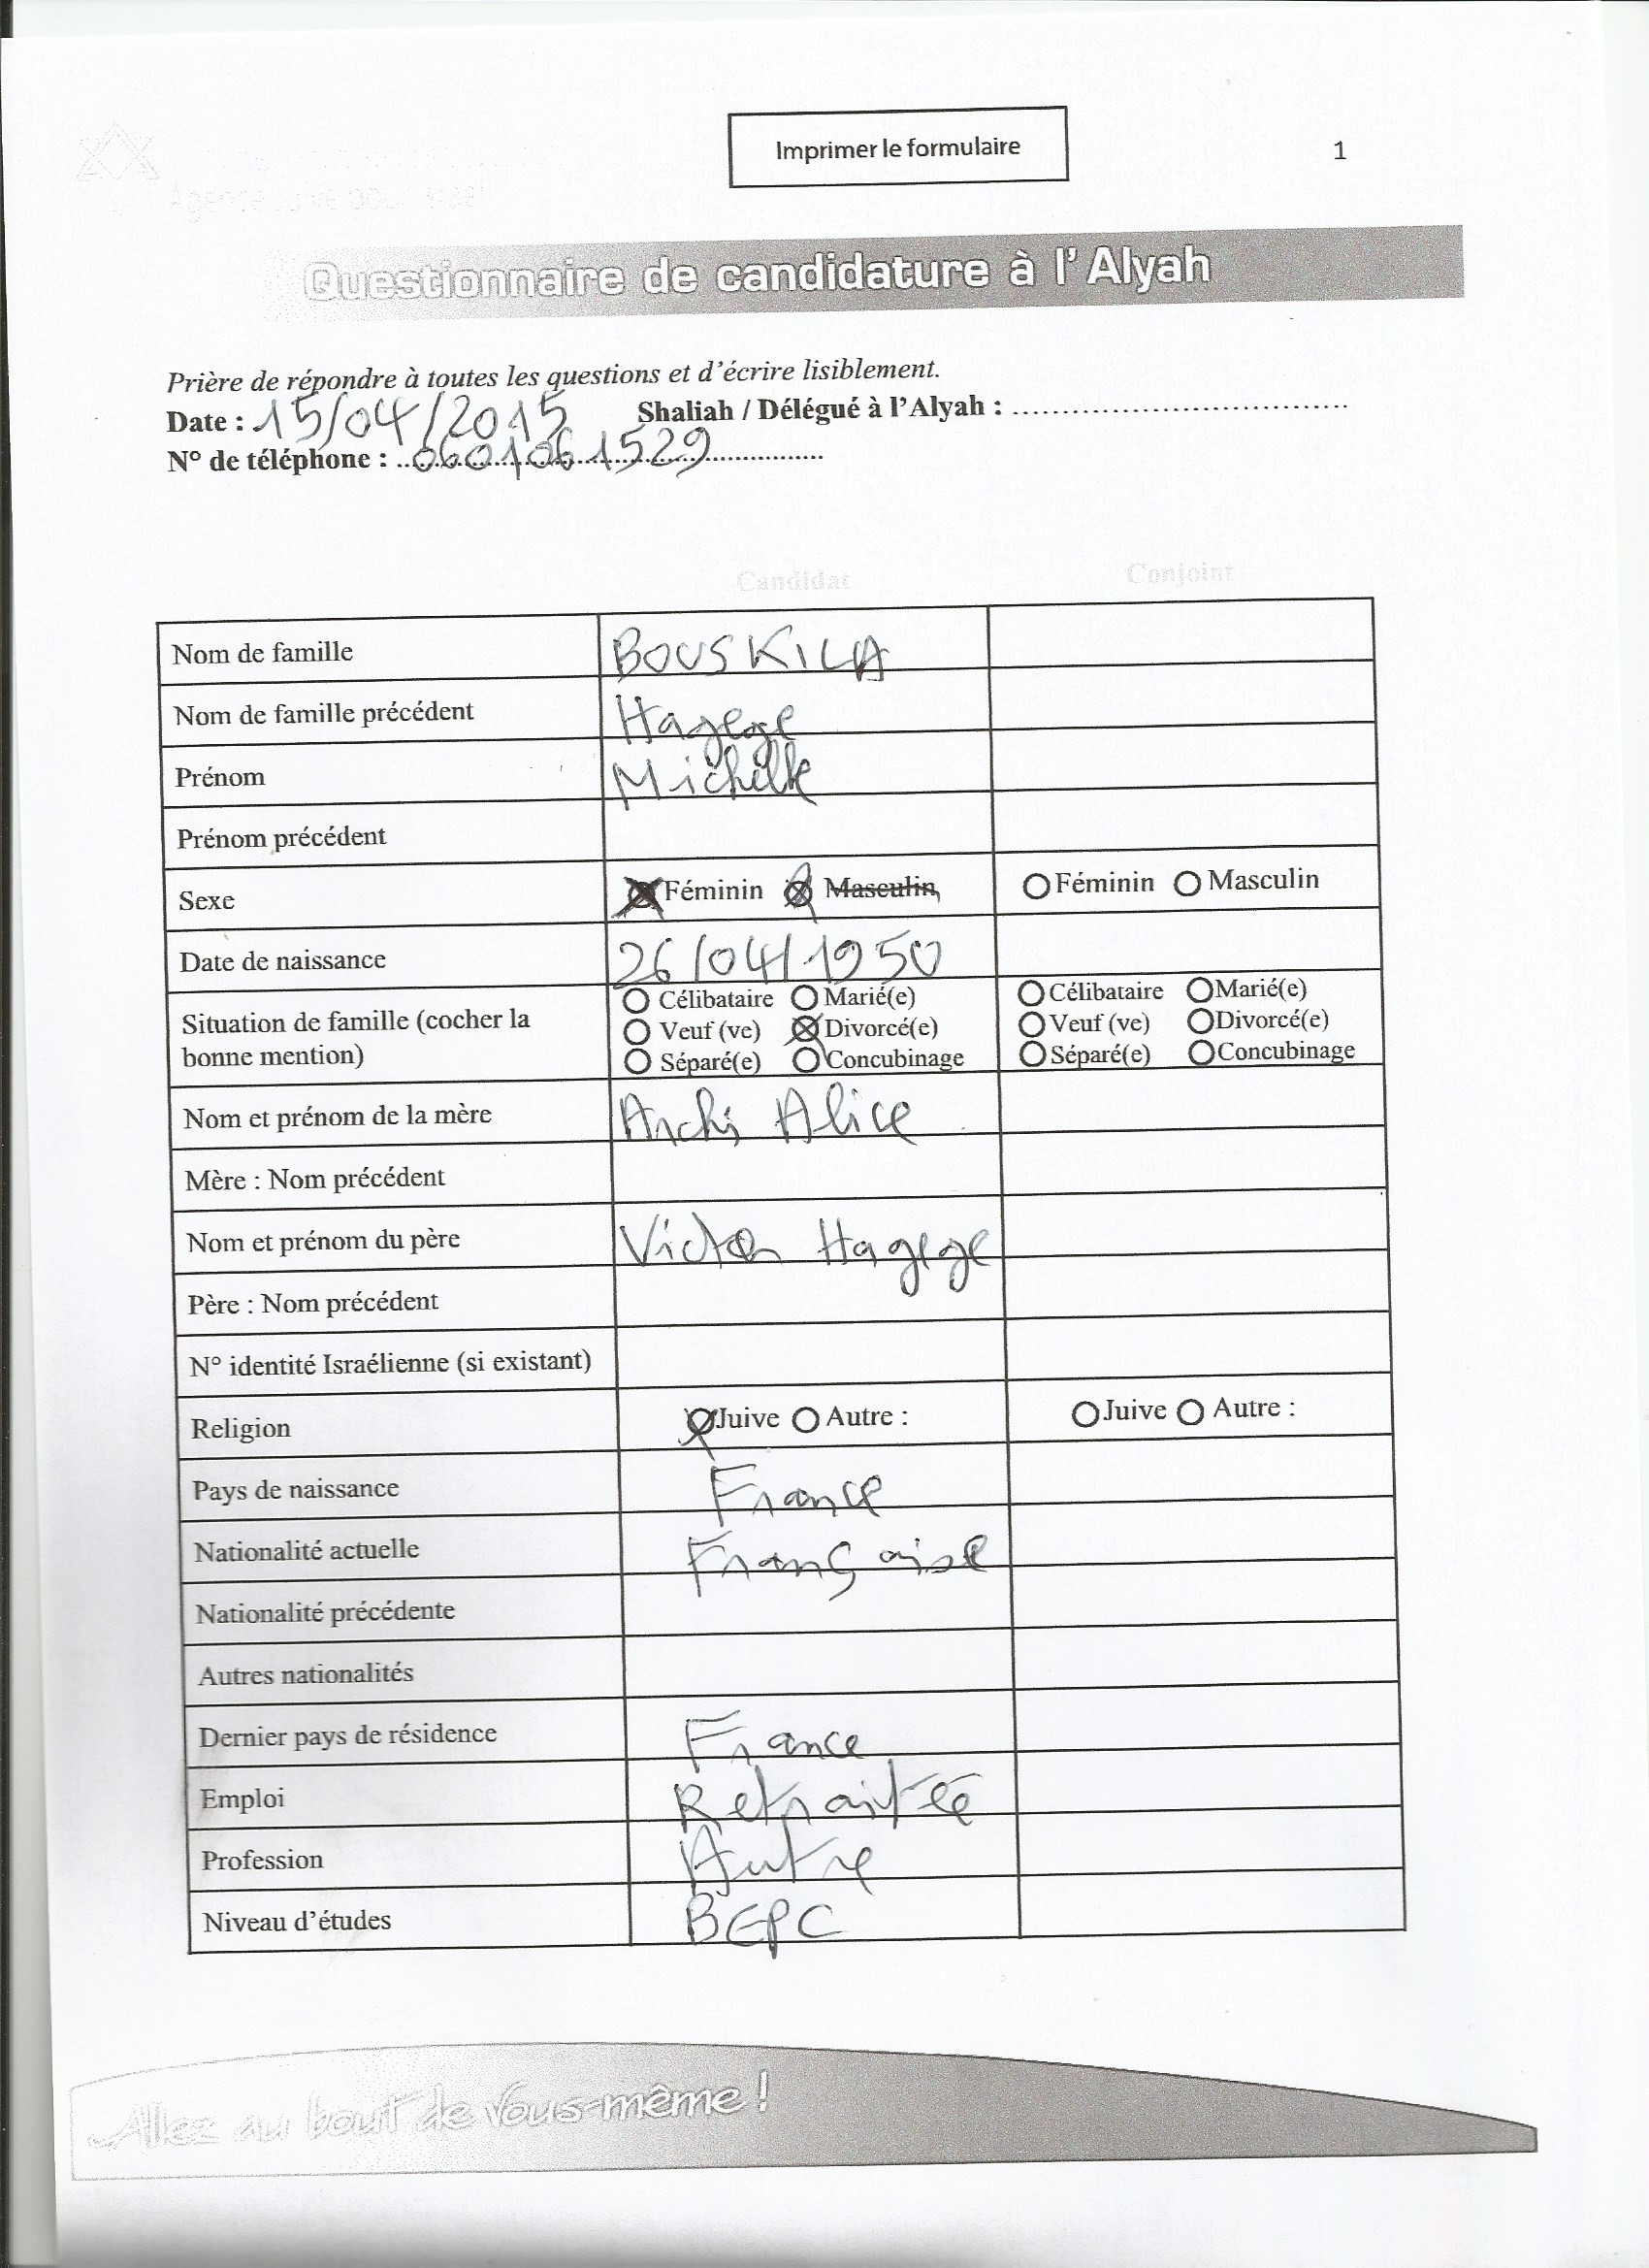 Imprimer le formulaire
1
Agence Juive pour Israël
Questionnaire de candidature à l'Alyah
Prière de répondre à toutes les questions et d'écrire lisiblement.
Date : 15/04/2015 Shaliah / Délégué à l'Alyah : ..................................
N° de téléphone : 0601061529
Candidat Conjoint
Nom de famille BOUSKILA
Nom de famille précédent Hagege
Prénom Michelle
Prénom précédent
Sexe Féminin Masculin Féminin Masculin
Date de naissance 26/04/1950
Situation de famille (cocher la bonne mention)
Célibataire Marié(e) Célibataire Marié(e)
Veuf (ve) Divorcé(e) Veuf (ve) Divorcé(e)
Séparé(e) Concubinage Séparé(e) Concubinage
Nom et prénom de la mère Archi Alice
Mère : Nom précédent
Nom et prénom du père Victor Hagege
Père : Nom précédent
N° identité Israélienne (si existant)
Religion Juive Autre : Juive Autre :
Pays de naissance France
Nationalité actuelle Française
Nationalité précédente
Autres nationalités
Dernier pays de résidence France
Emploi Retraitée
Profession Autre
Niveau d'études BEPC
Allez au bout de Vous-même !